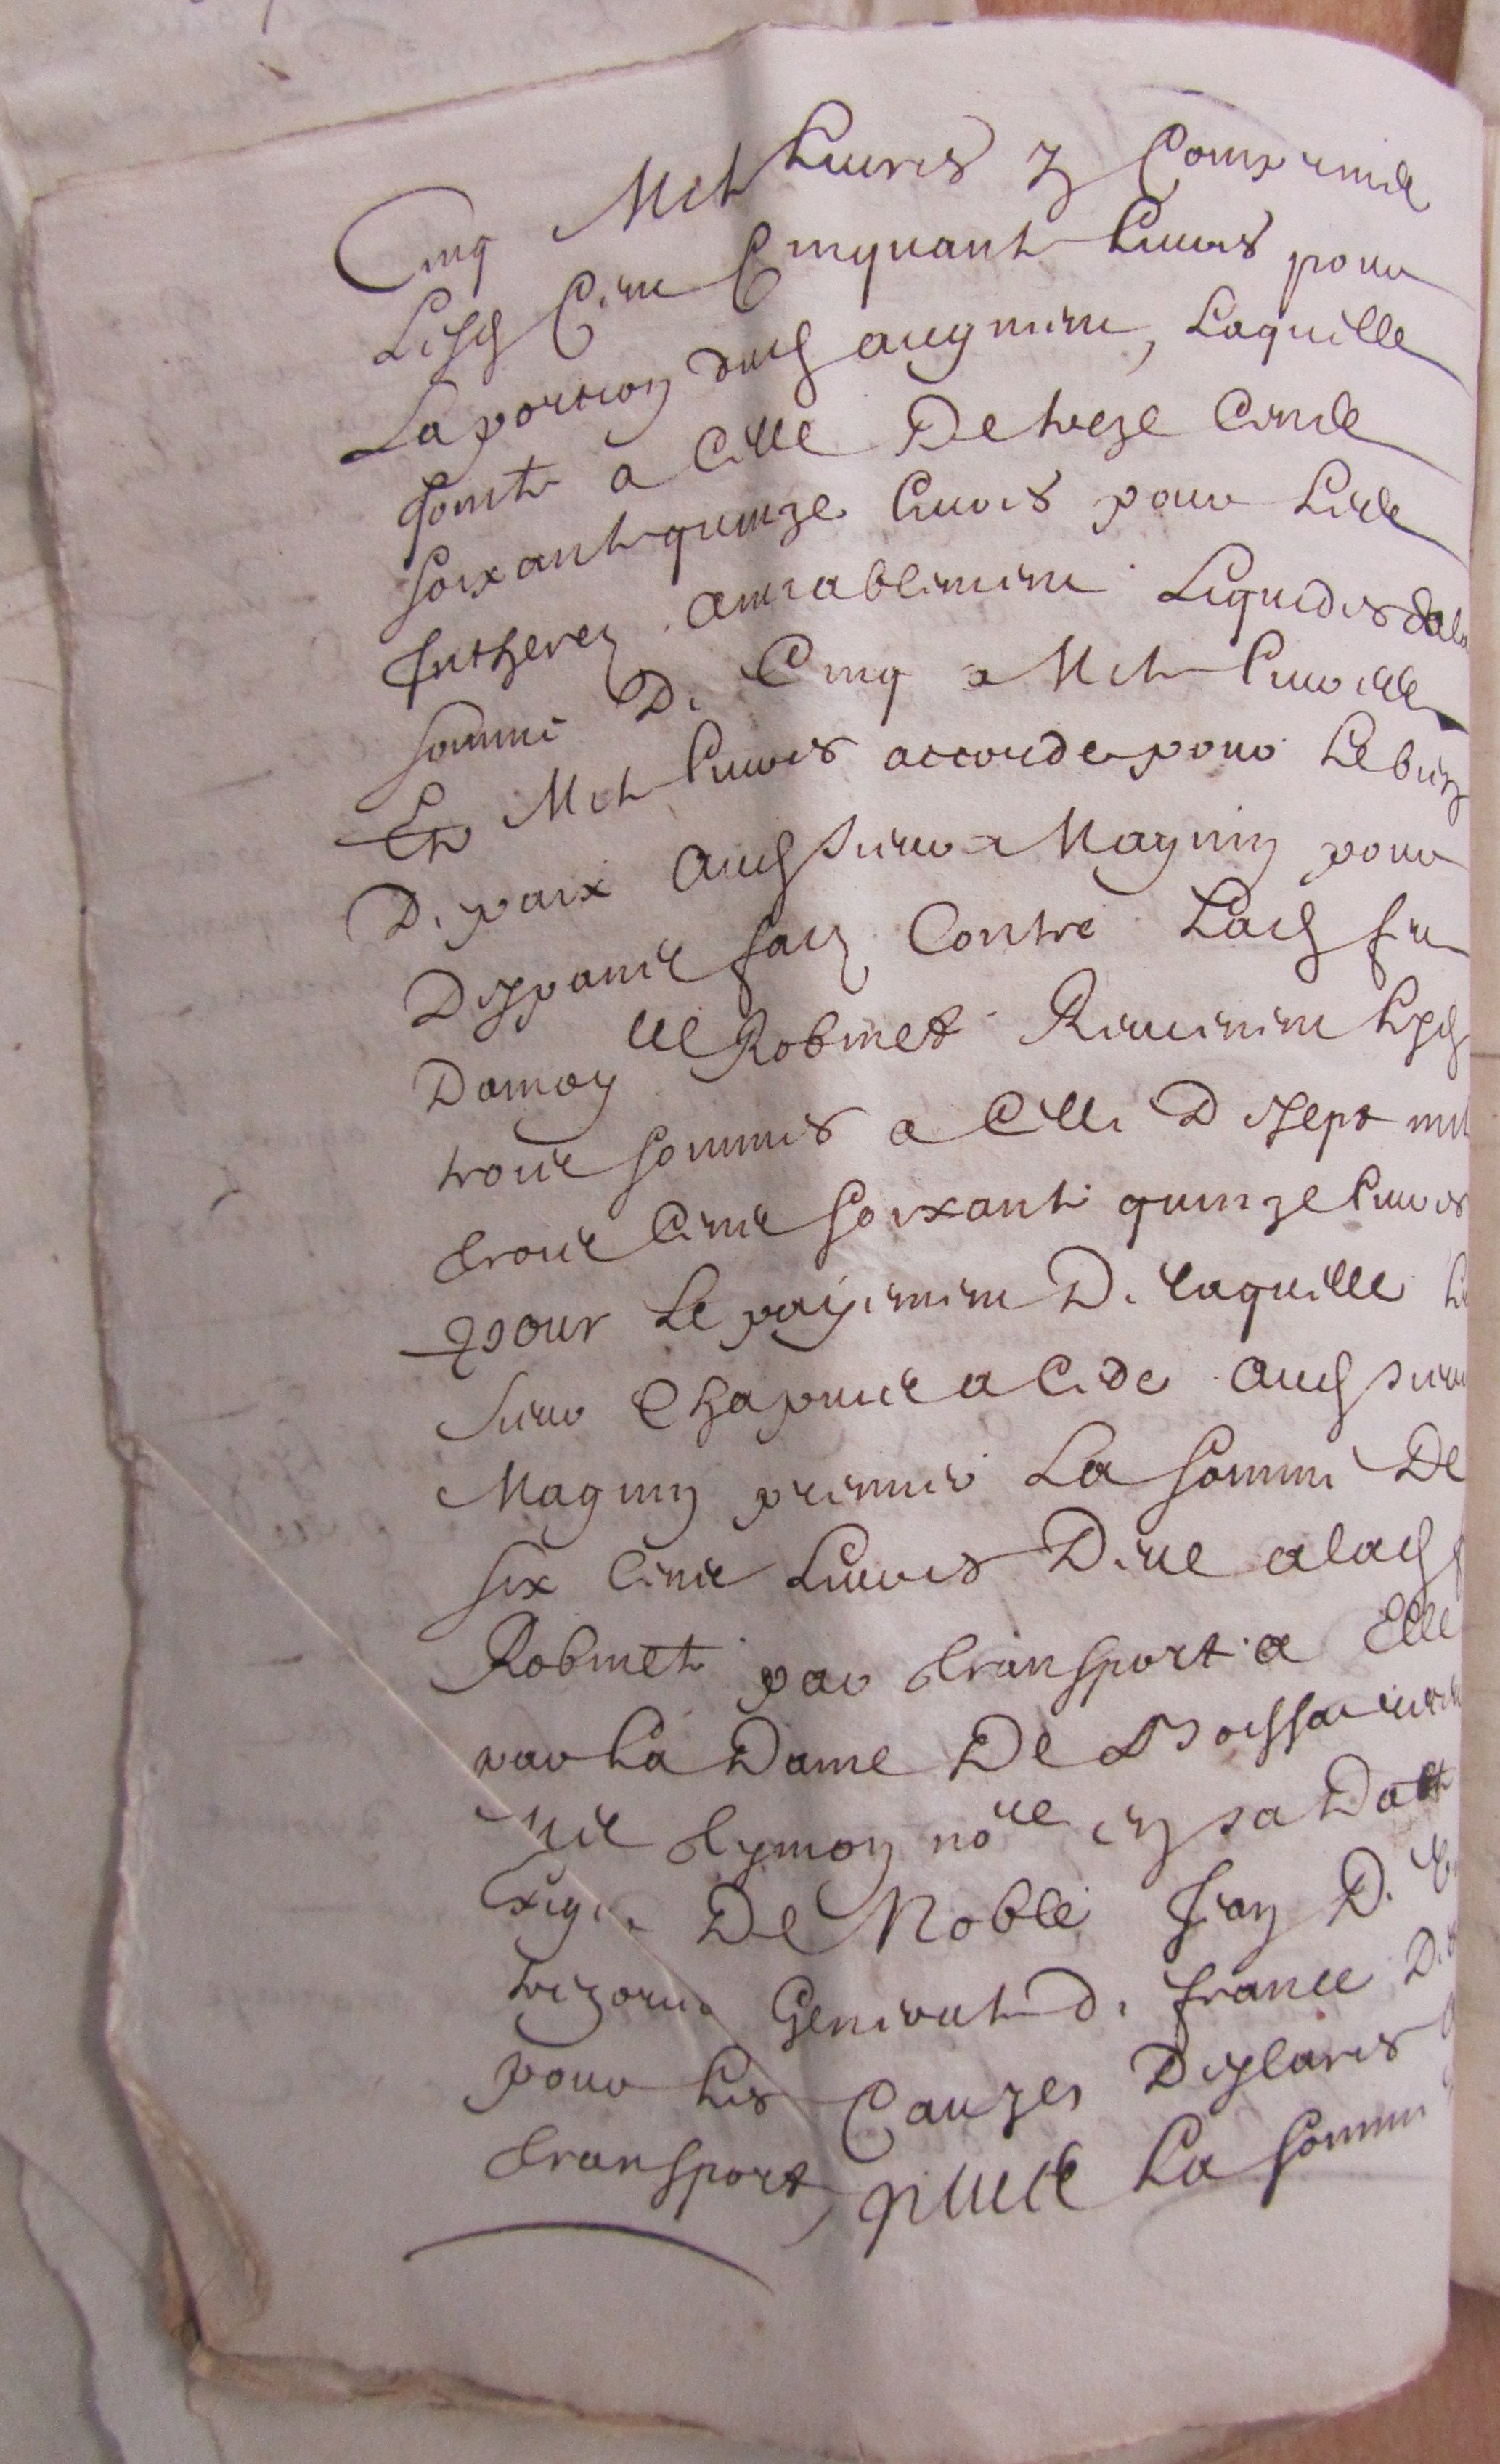 Cinq Mil Livres y Comprins
Lesd Cent Cinquante Livres pour
La portion dud augment, Laquelle
Jointe a Celle De treze Cents
soixante quinze Livres pour Lesd
Intherez amiablement Liquides a la
somme De Cinq Mil Livres
Et Mil Livres accorde pour Le bien
De paix aud sieur Magnin pour
Despans faitz Contre Lad
Damoy lle Robinet Reviennent lesd
trois sommes a Celle De sept mil
trois Cents soixante quinze Livres
pour Le payement De laquelle Le
sieur Chapuis a Cede aud sieur
Magnin premier La somme De
six Cents Livres Deue a lad
Robinet par transport a Elle
par La Dame De
Me Aymon nore en sa Datte
Exiger De Noble Jean De
trezorier General De France
pour Les Causes Desclares
transport, plus La somme